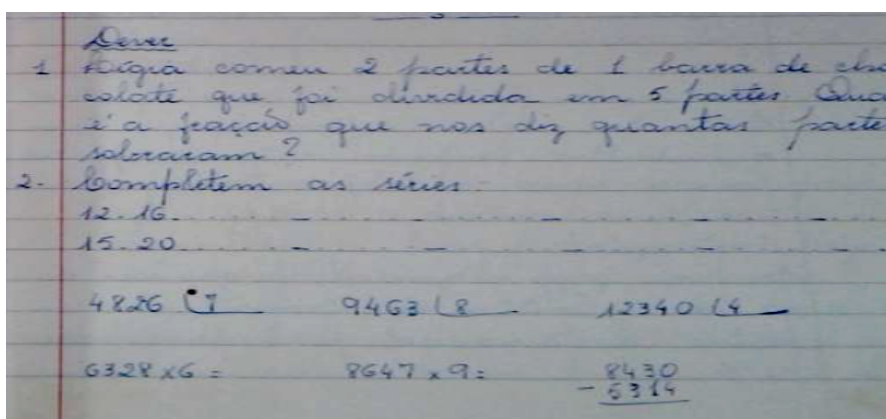 Dever
1 comeu 2 partes de 1 barra de cho
colate que foi dividida em 5 partes. Qua
é a fração que nos diz quantas parte
sobraram?
2. Completem as séries.
12. 16. . . . . . . . - . . . . . . . - . . . . . . . - . . . . . . . -
15. 20. . . . . . . . - . . . . . . . - . . . . . . . - . . . . . . . -
4826 7 9463 8 12340 4
6328 x 6 = 8647 x 9 = 8430
- 5314